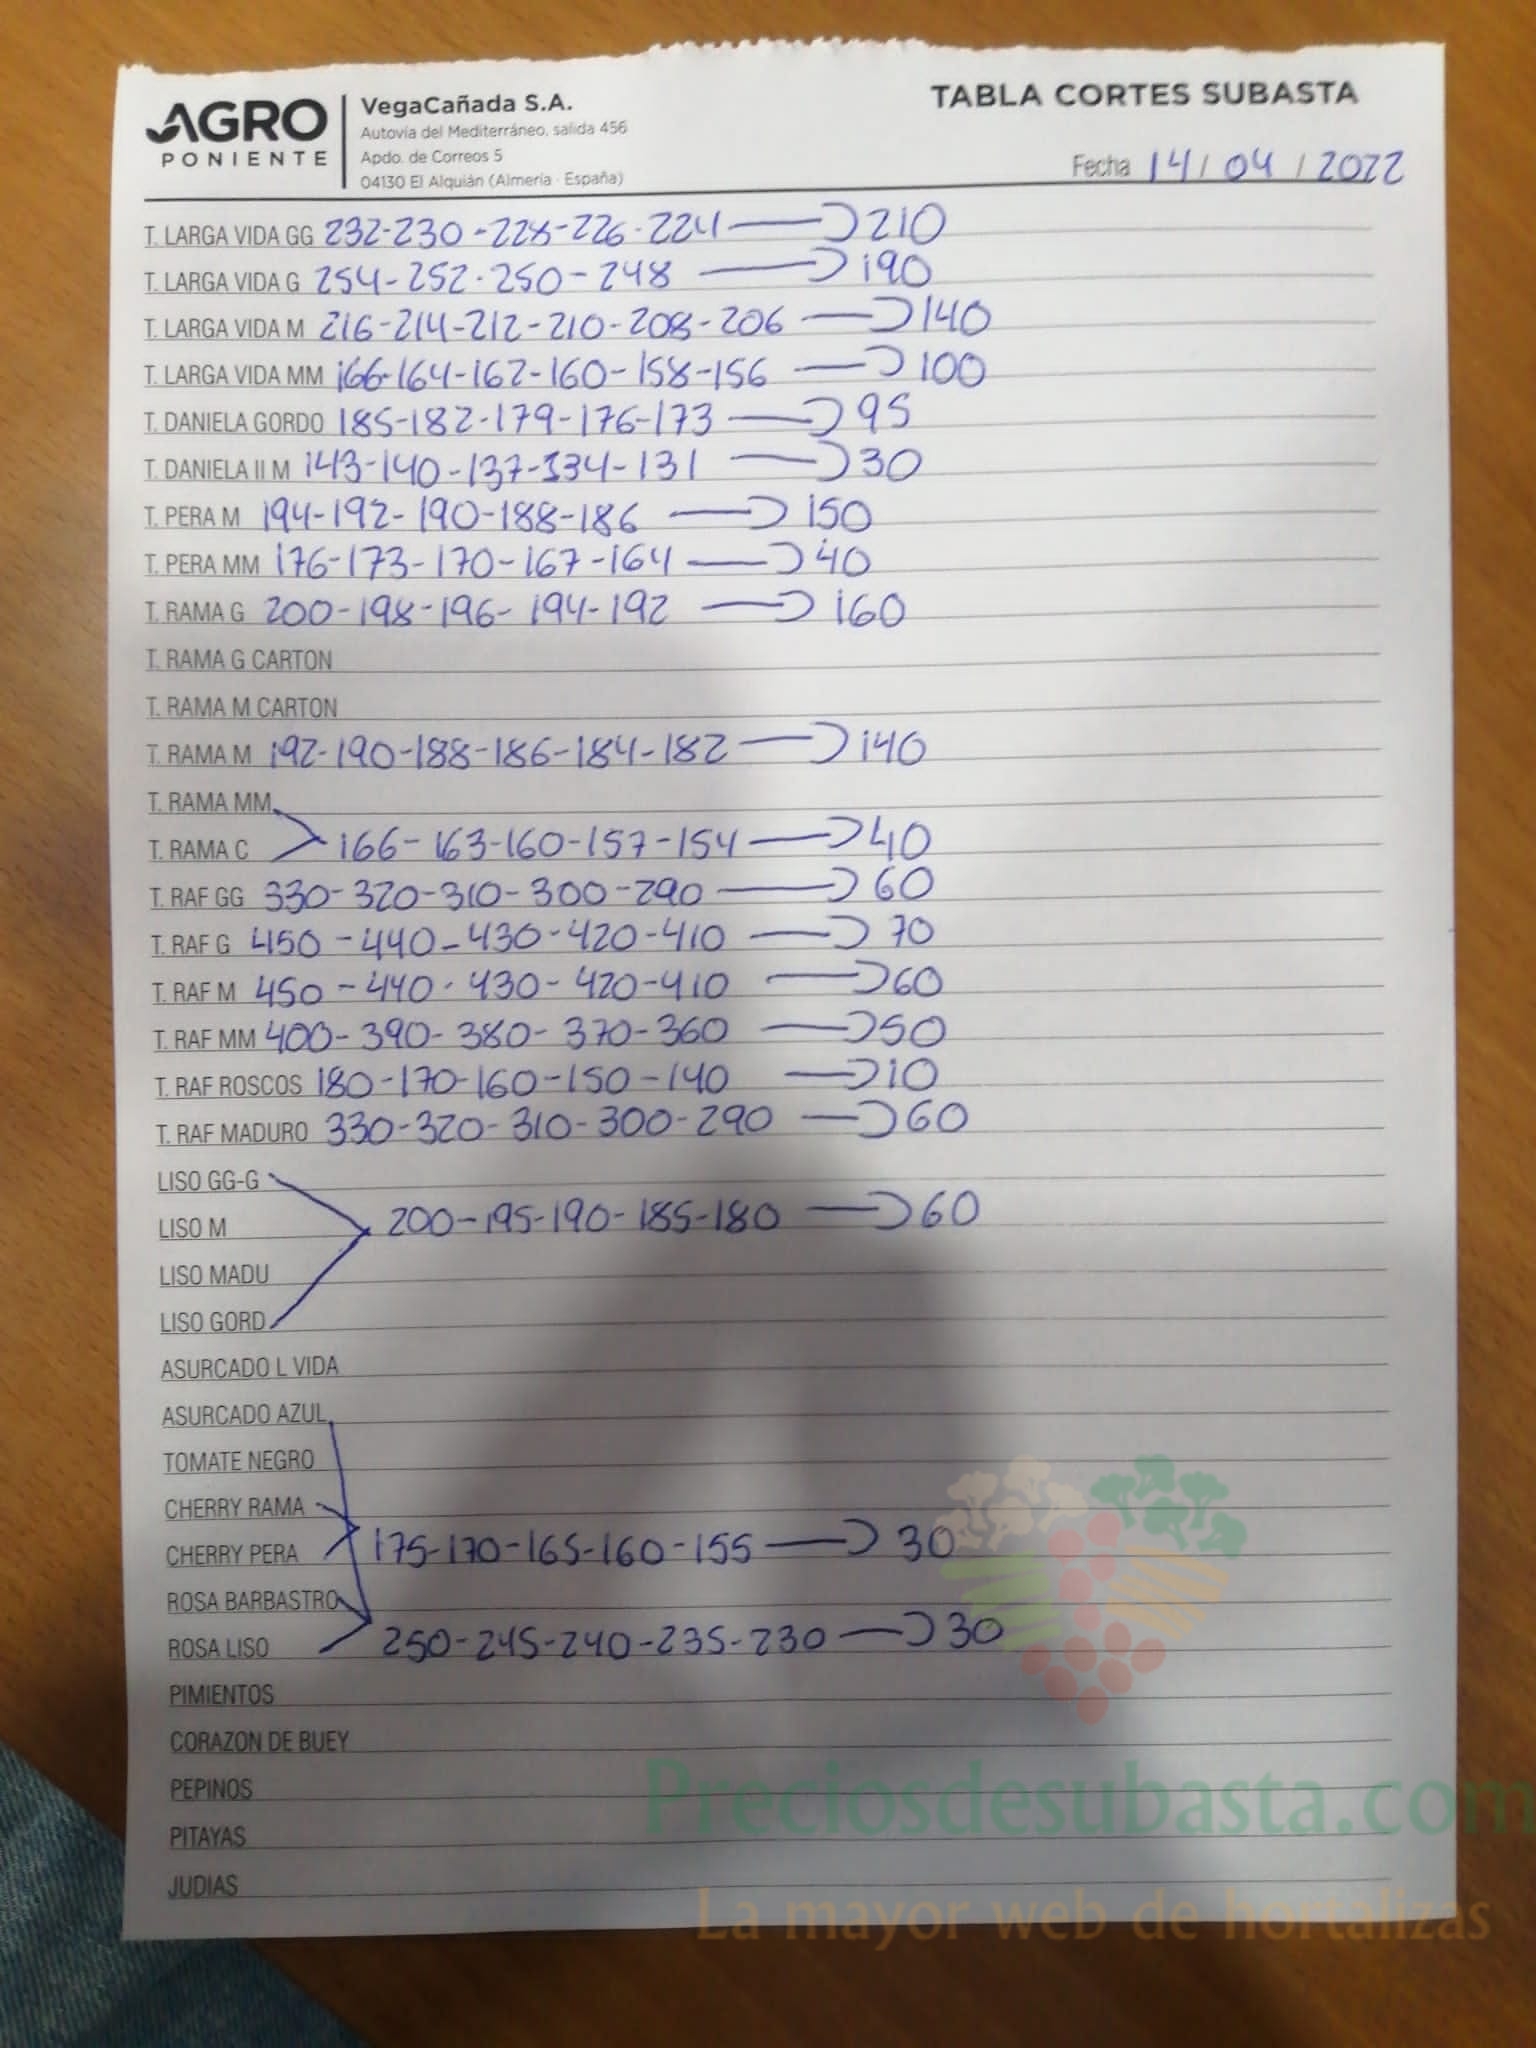 AGRO
PONIENTE
VegaCañada S.A.
Autovía del Mediterráneo, salida 456
Apdo. de Correos 5
04130 El Alquián (Almería · España)
TABLA CORTES SUBASTA
Fecha 14 / 04 / 2022
T. LARGA VIDA GG 232-230-228-226-224 210
T. LARGA VIDA G 254-252-250-248 190
T. LARGA VIDA M 216-214-212-210-208-206 140
T. LARGA VIDA MM 166-164-162-160-158-156 100
T. DANIELA GORDO 185-182-179-176-173 95
T. DANIELA II M 143-140-137-134-131 30
T. PERA M 194-192-190-188-186 150
T. PERA MM 176-173-170-167-164 40
T. RAMA G 200-198-196-194-192 160
T. RAMA G CARTON
T. RAMA M CARTON
T. RAMA M 192-190-188-186-184-182 140
T. RAMA MM
T. RAMA C 166-163-160-157-154 40
T. RAF GG 330-320-310-300-290 60
T. RAF G 450-440-430-420-410 70
T. RAF M 450-440-430-420-410 60
T. RAF MM 400-390-380-370-360 50
T. RAF ROSCOS 180-170-160-150-140 10
T. RAF MADURO 330-320-310-300-290 60
LISO GG-G
LISO M 200-195-190-185-180 60
LISO MADU
LISO GORD
ASURCADO L VIDA
ASURCADO AZUL
TOMATE NEGRO
CHERRY RAMA
CHERRY PERA 175-170-165-160-155 30
ROSA BARBASTRO
ROSA LISO 250-245-240-235-230 30
PIMIENTOS
CORAZON DE BUEY
PEPINOS
PITAYAS
JUDIAS
Preciosdesubasta.com
La mayor web de hortalizas